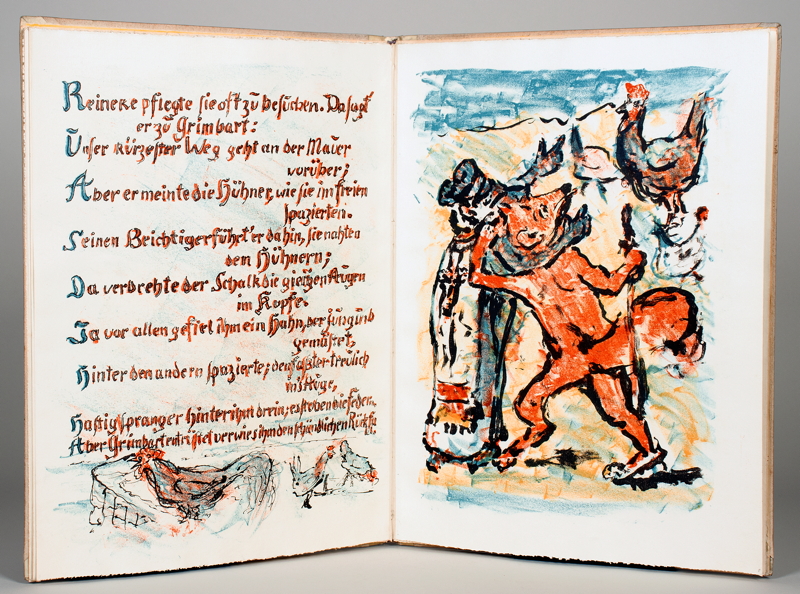 Reineke pflegte sie oft zu besuchen. Da sagt
er zu Grimbart:
Unser kürzester Weg geht an der Mauer
vorüber;
Aber er meinte die Hühner, wie sie im freien
spazierten.
Seinen Beichtiger führt' er dahin, sie nahten
den Hühnern;
Da verdrehte der Schalk die gierigen Augen
im Kopfe.
Ja vor allen gefiel ihm ein Hahn, der jung und
gemästet,
Hinter den andern spazierte; den faßt er treulich
ins Auge,
Hastig sprang er hinter ihm drein; es stoben die Federn.
Aber Grimbart entrüstet verwies ihm den schändlichen Rückfall